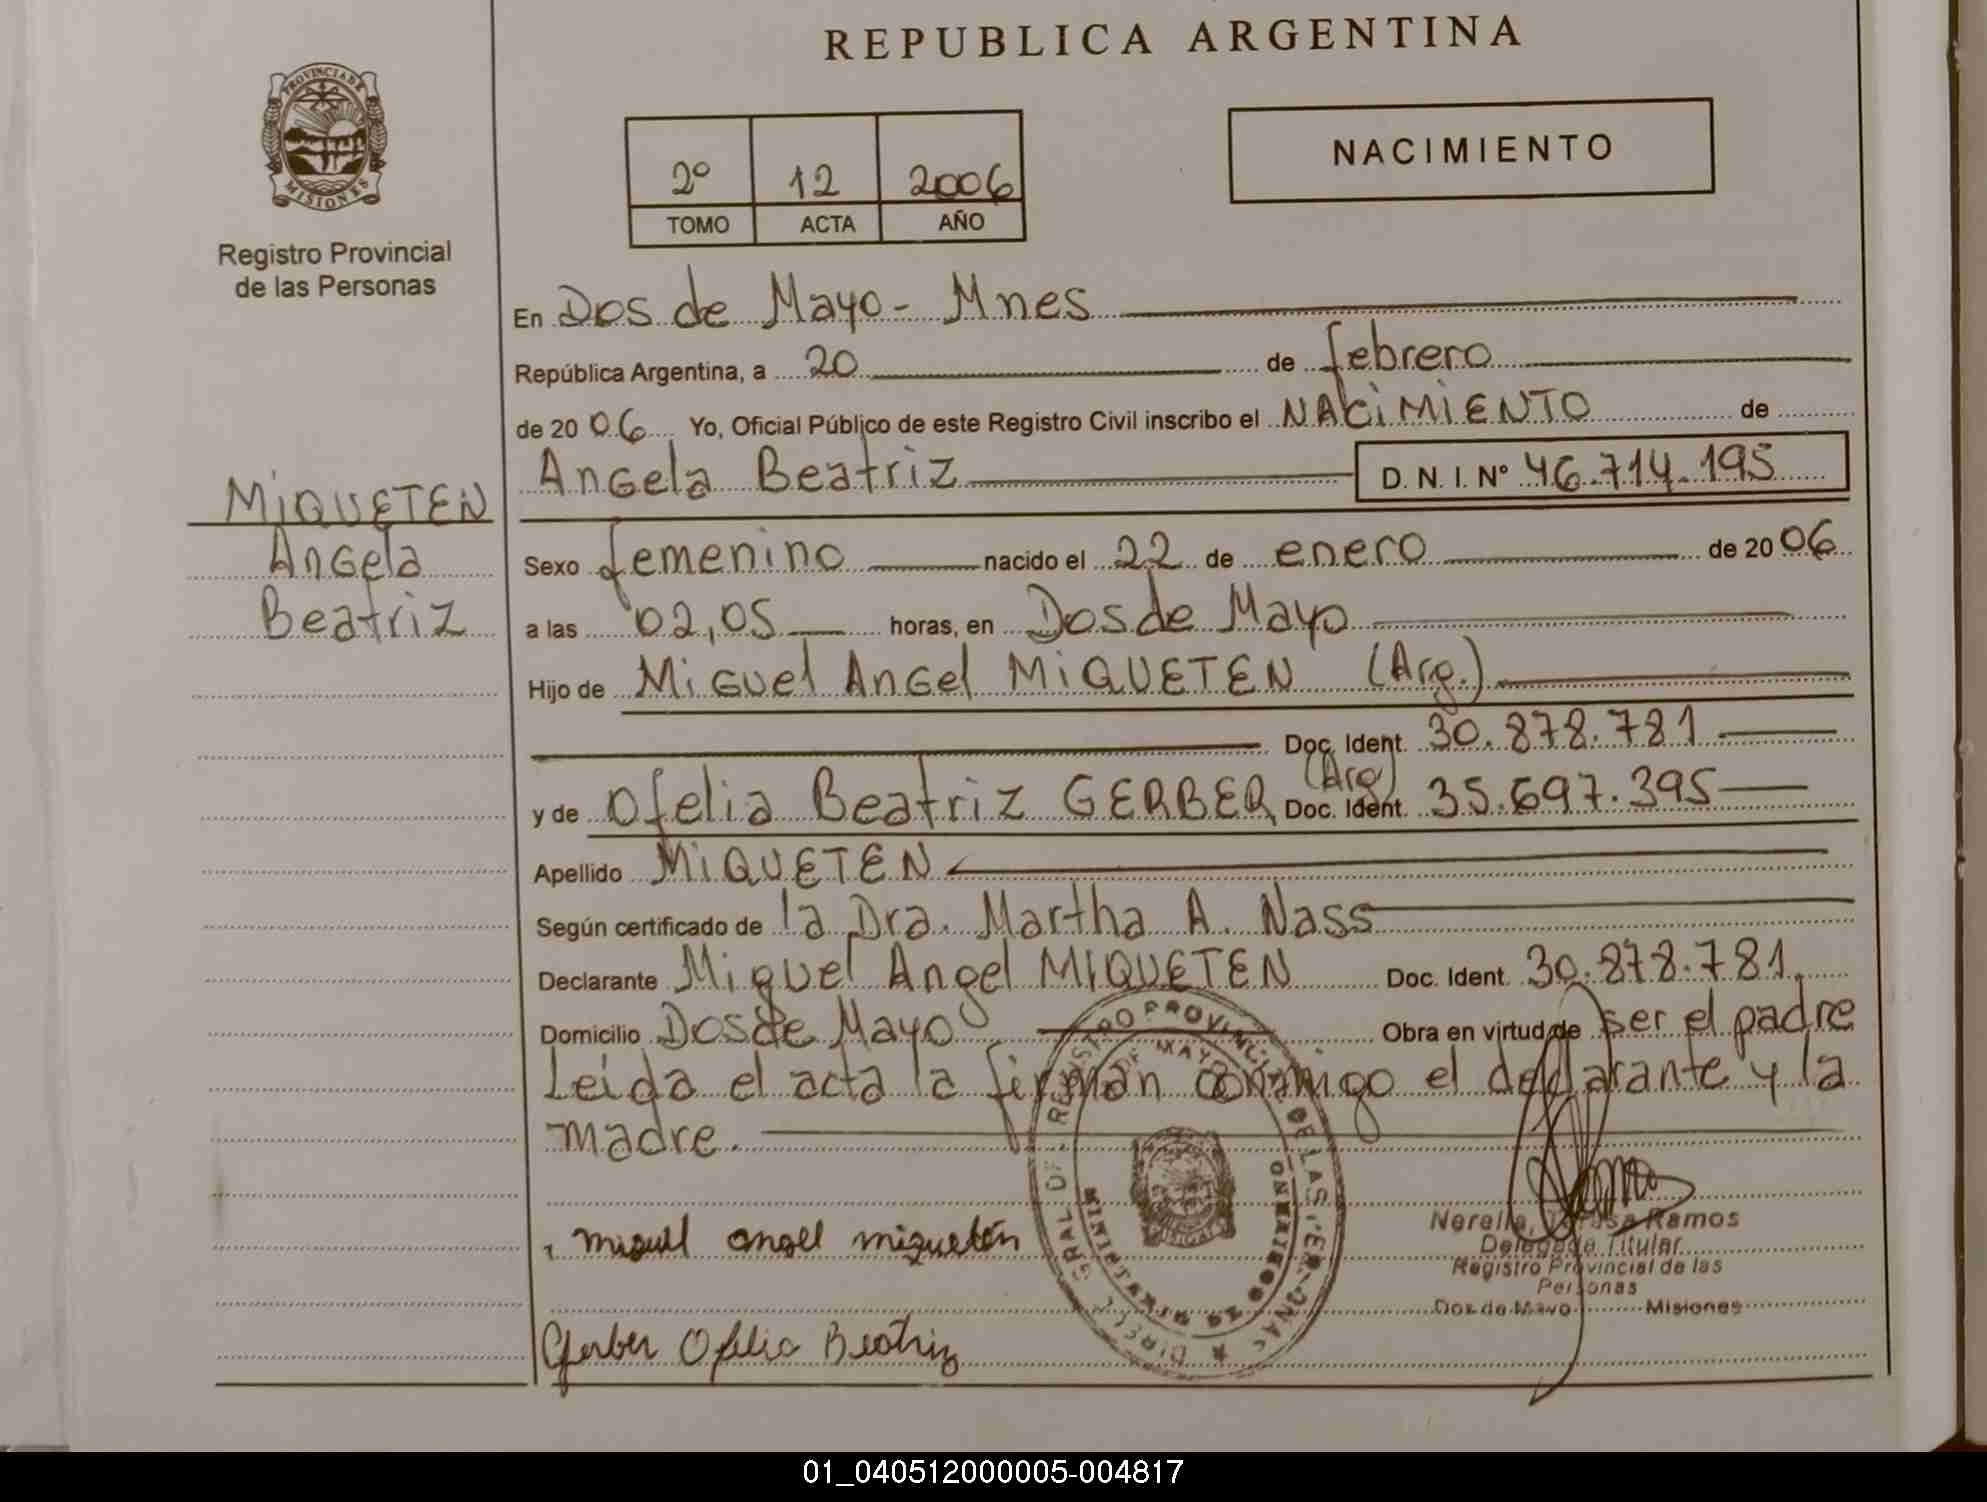 REPUBLICA ARGENTINA
PROVINCIA DE
MISIONES
Registro Provincial
de las Personas
2º 12 2006
TOMO ACTA AÑO
NACIMIENTO
En Dos de Mayo - Mnes
República Argentina, a 20 de febrero
de 2006 Yo, Oficial Público de este Registro Civil inscribo el NACIMIENTO de
Angela Beatriz D. N. I. Nº 46.714.195
MIQUETEN
Angela
Beatriz
Sexo femenino nacido el 22 de enero de 2006
a las 02,05 horas, en Dos de Mayo
Hijo de Miguel Angel MIQUETEN (Arg.)
Doc. Ident. 30.878.781
y de Ofelia Beatriz GERBER (Arg) Doc. Ident. 35.697.395
Apellido MIQUETEN
Según certificado de la Dra. Martha A. Nass
Declarante Miguel Angel MIQUETEN Doc. Ident. 30.878.781
Domicilio Dos de Mayo Obra en virtud de ser el padre
Leída el acta la firman conmigo el declarante y la
madre.
miguel angel miqueten
Gerber Ofelia Beatriz
Ramos
Delegada Titular
Registro Provincial de las
Personas
Dos de Mayo Misiones
01_040512000005-004817